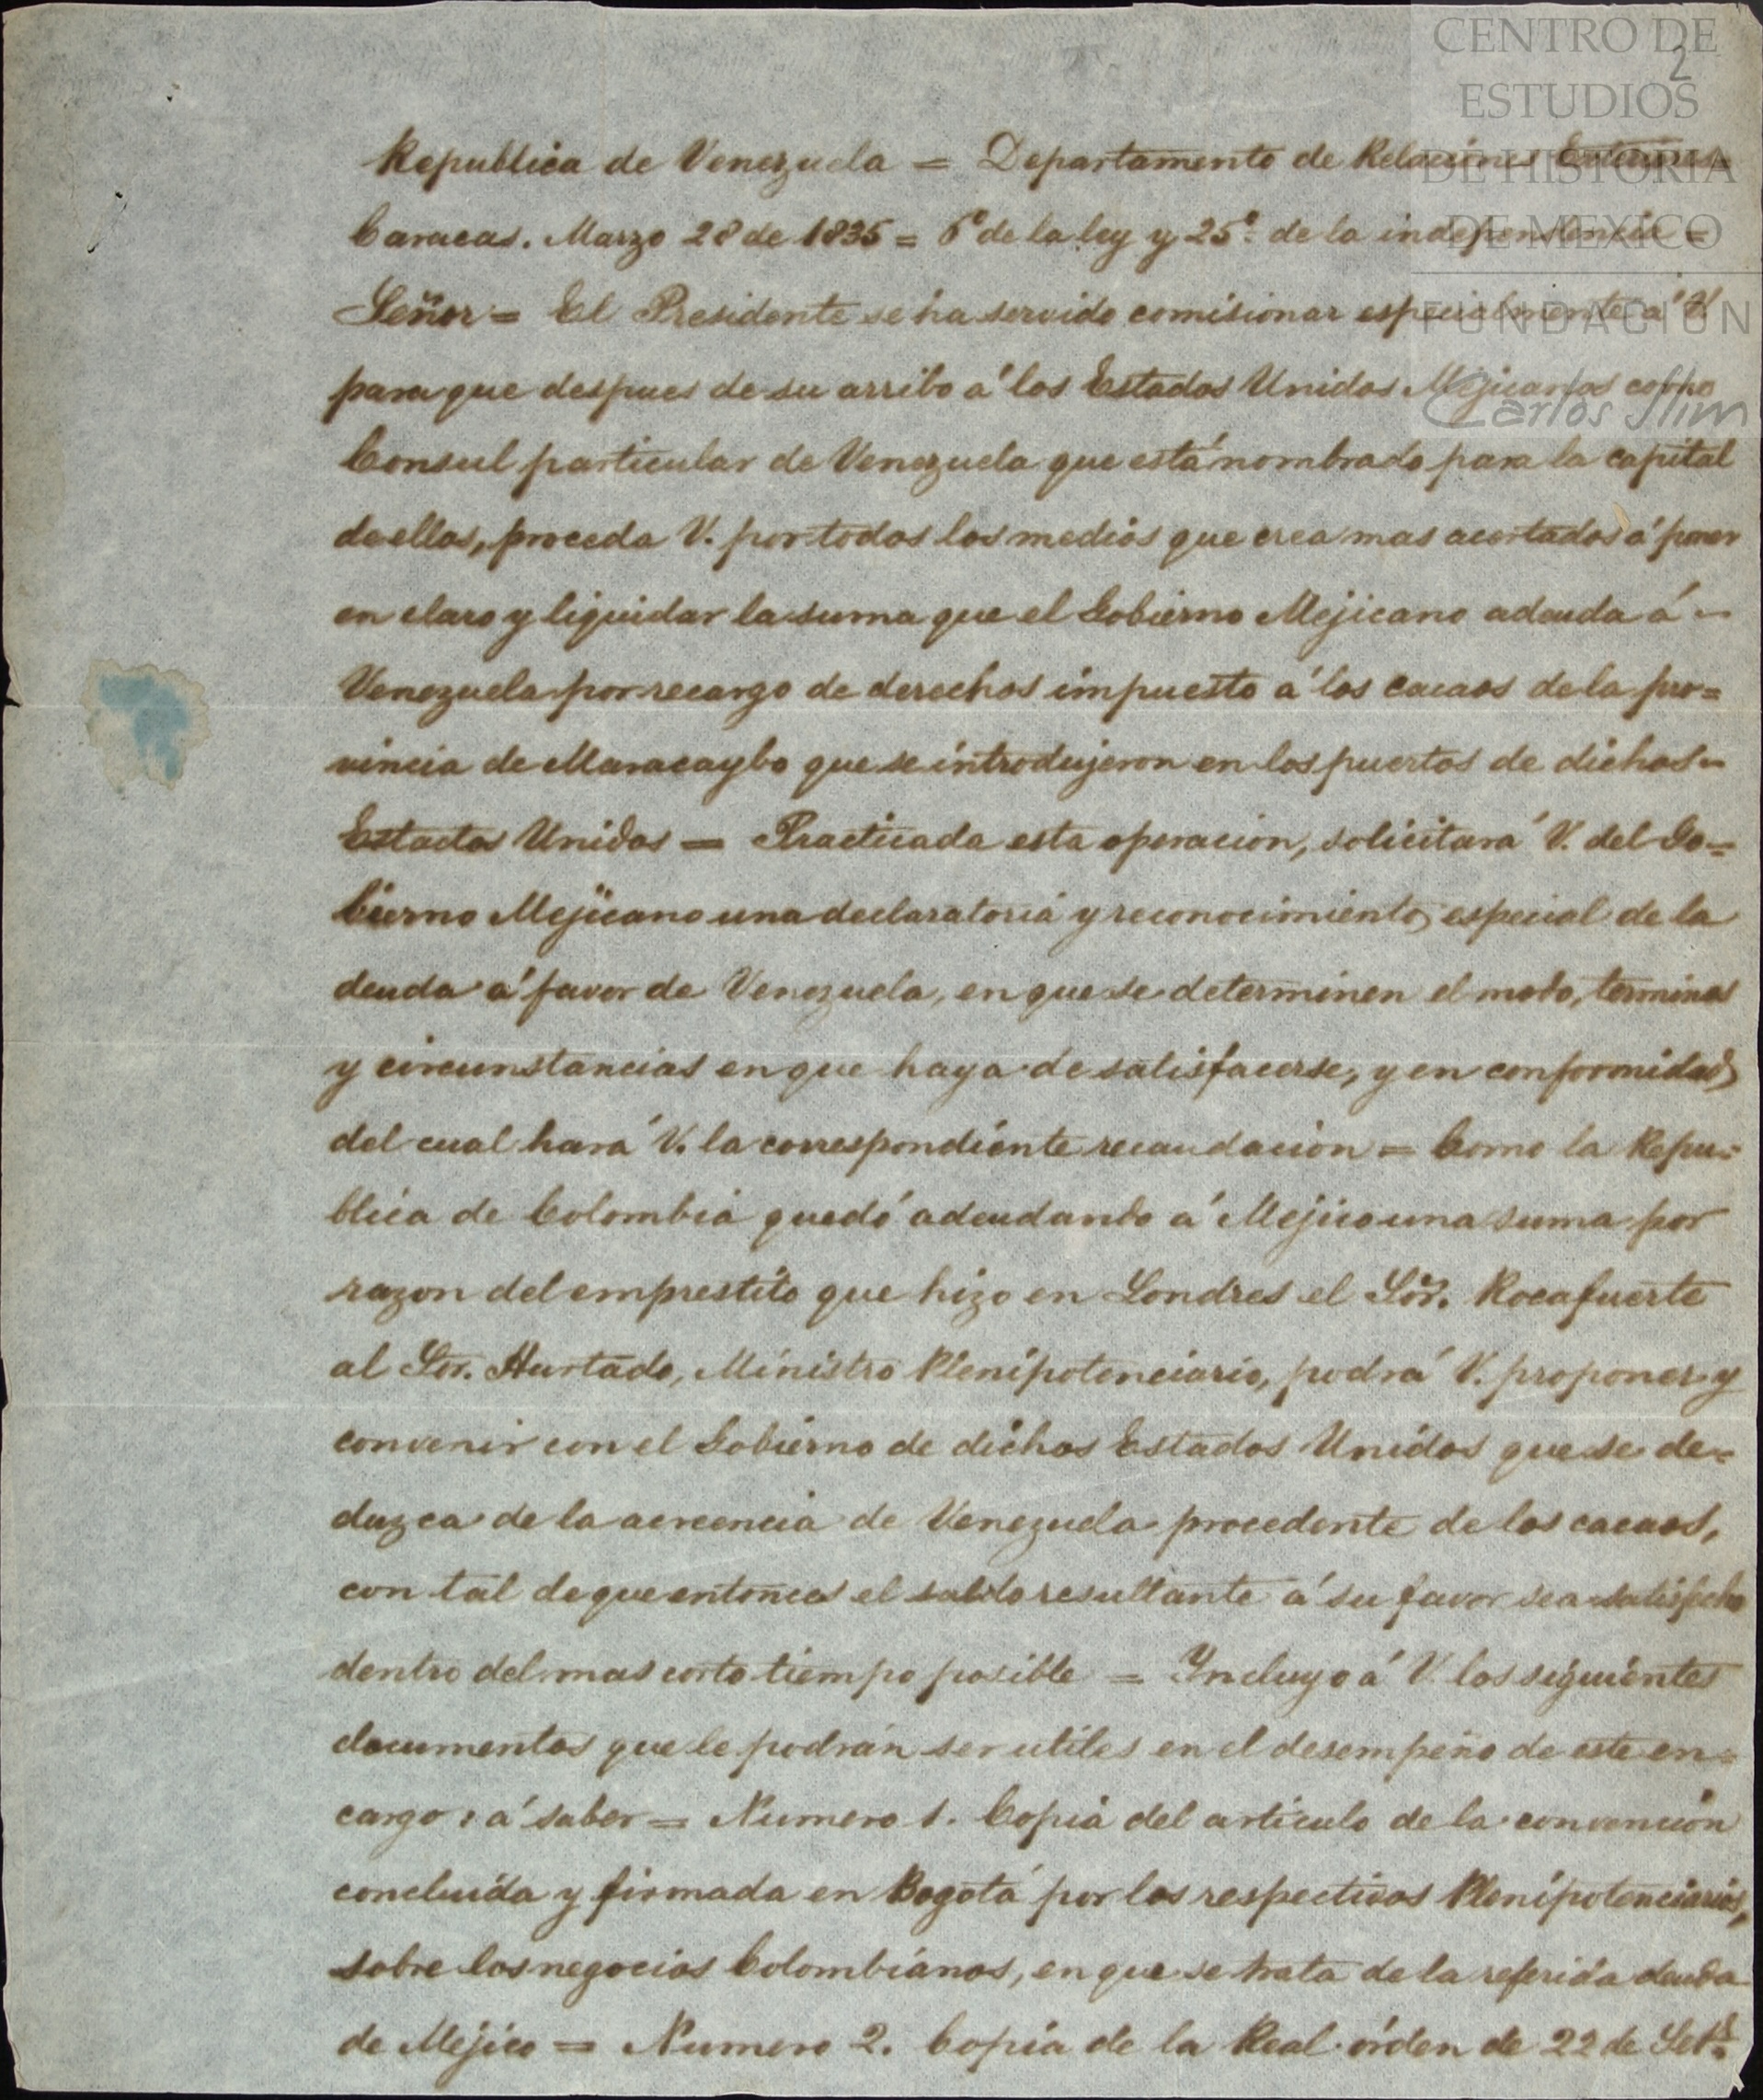 CENTRO DE
ESTUDIOS
DE HISTORIA
DE MEXICO
FUNDACIÓN
Carlos Slim
2
Republica de Venezuela = Departamento de Relaciones Exteriores=
Caracas. Marzo 28 de 1835 = 6º de la ley y 25º de la independencia =
Señor = El Presidente se ha servido comisionar especialmente á V.
para que despues de su arribo á los Estados Unidos Mejicanos como
Consul particular de Venezuela que está nombrado para la capital
de ellos, proceda V. por todos los medios que crea mas acertados á poner
en claro y liquidar la suma que el Gobierno Mejicano adeuda á -
Venezuela por recargo de derechos impuesto á los cacaos de la pro=
vincia de Maracaybo que se introdujeron en los puertos de dichos -
Estados Unidos = Practicada esta operacion, solicitará V. del Go=
bierno Mejicano una declaratoria y reconocimiento especial de la
deuda á favor de Venezuela, en que se determinen el modo, terminos
y circunstancias en que haya de satisfacerse, y en conformidad
del cual hará V. la correspondiente recaudacion = Como la Repu=
blica de Colombia quedó adeudando á Mejico una suma por
razon del emprestito que hizo en Londres el Sor. Rocafuerte
al Sor. Hurtado, Ministro Plenipotenciario, podrá V. proponer y
convenir con el Gobierno de dichos Estados Unidos que se de=
duzca de la acreencia de Venezuela procedente de los cacaos,
con tal de que entonces el saldo resultante á su favor sea satisfecho
dentro del mas corto tiempo posible = Incluyo á V. los siguientes
documentos que le podrán ser utiles en el desempeño de este en=
cargo: á saber = Numero 1. Copia del articulo de la convencion
concluida y firmada en Bogotá por los respectivos Plenipotenciarios,
sobre los negocios Colombianos, en que se trata de la referida deuda
de Mejico = Numero 2. Copia de la Real órden de 22 de Set.e